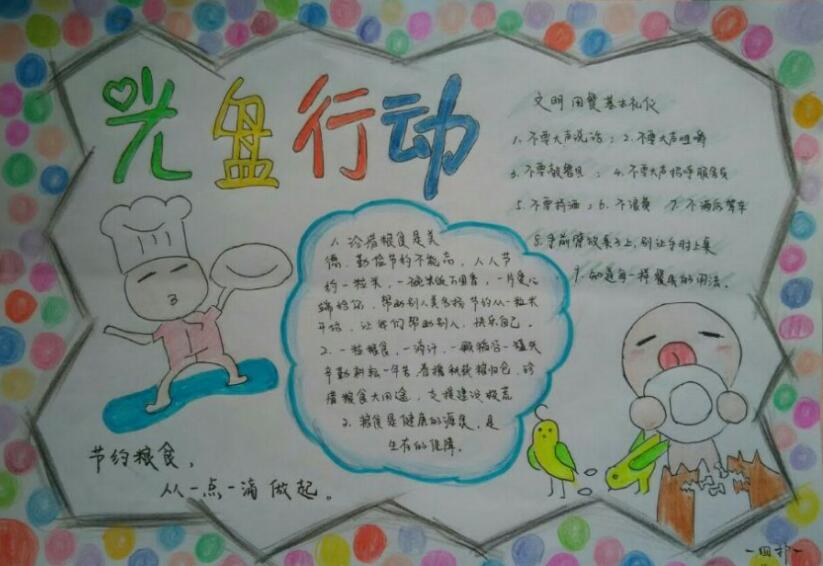 光盘行动
文明用餐基本礼仪
1. 不要大声说话；2. 不要大声咀嚼
3. 不要敲餐具；4. 不要大声招呼服务员
5. 不要持酒；6. 不浪费 7. 不酒后驾车
8. 手前臂放桌子上，别让手肘上桌
9. 知道每一样餐具的用法。
1. 珍惜粮食是美
德，勤俭节约不能忘，人人节
约一粒米，一碗米饭
一片爱心
帮助别人
节约从一粒米
开始，让我们帮助别人，快乐自己。
2. 一粒粮食，一滴汗，一颗稻谷一
辛勤耕耘一年苦，春播秋收粮归仓，珍
惜粮食大用途，支援建设
3. 粮食是健康的源泉，是
生存的保障。
节约粮食，
从一点一滴做起。